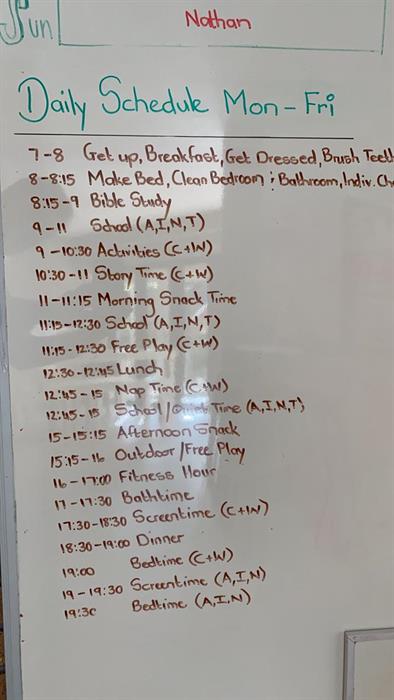 Sun
Nathan
Daily Schedule Mon-Fri
7-8 Get up, Breakfast, Get Dressed, Brush Teeth
8-8:15 Make Bed, Clean Bedroom & Bathroom, Indiv. Ch
8:15-9 Bible Study
9-11 School (A,I,N,T)
9-10:30 Activities (C+W)
10:30-11 Story Time (C+W)
11-11:15 Morning Snack Time
11:15-12:30 School (A,I,N,T)
11:15-12:30 Free Play (C+W)
12:30-12:45 Lunch
12:45-15 Nap Time (C+W)
12:45-15 School/Quiet Time (A,I,N,T)
15-15:15 Afternoon Snack
15:15-16 Outdoor/Free Play
16-17:00 Fitness Hour
17-17:30 Bathtime
17:30-18:30 Screentime (C+W)
18:30-19:00 Dinner
19:00 Bedtime (C+W)
19-19:30 Screentime (A,I,N)
19:30 Bedtime (A,I,N)